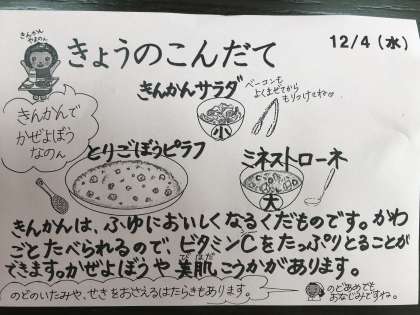 きんかん
やまのん
きょうのこんだて
12/4（水）
きんかんサラダ
ベーコンも
よくまぜてから
もりつけてね☺
小
きんかんで
かぜよぼう
なのん
とりごぼうピラフ
ミネストローネ
大
きんかんは、ふゆにおいしくなるくだものです。かわ
ごとたべられるので、ビタミンCをたっぷりとることが
できます。かぜよぼうや美肌こうかがあります。
びはだ
のどのいたみや、せきをおさえるはたらきもあります。
のどあめでも
おなじみですね。